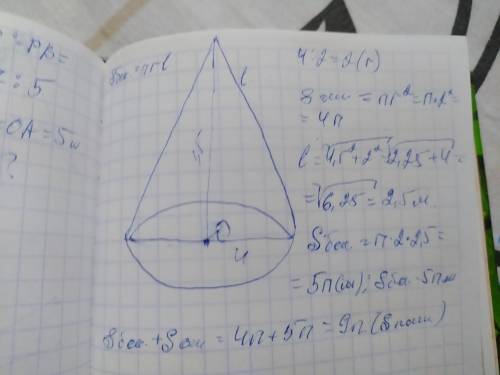 : РВ =
: 5
ОА = 5 м
?
Sбок = πrl
l
O
4
4 : 2 = 2 (r)
Sосн = πr² = π·2² =
= 4π
= √6,25 = 2,5 м.
Sбок = π · 2 · 2,5 =
= 5π (м); Sбок = 5π м
Sбок + Sосн = 4π + 5π = 9π (Sполн)